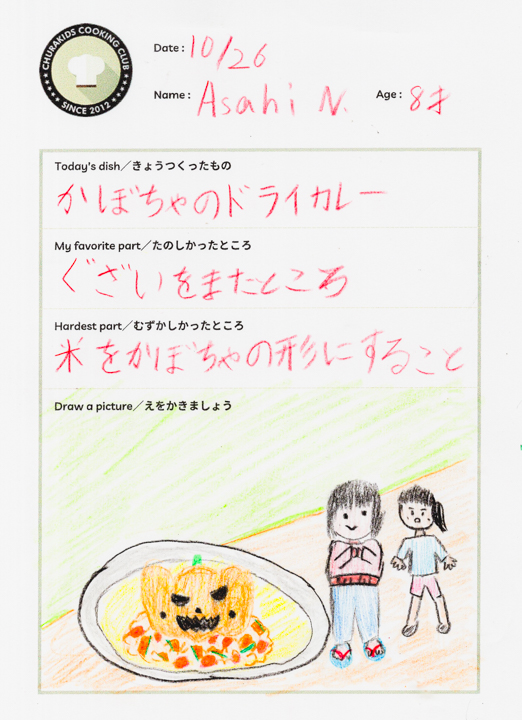 CHURAKIDS COOKING CLUB
SINCE 2012
Date : 10/26
Name : Asahi N. Age : 8才
Today's dish／きょうつくったもの
かぼちゃのドライカレー
My favorite part／たのしかったところ
ぐざいをまたところ
Hardest part／むずかしかったところ
米をかぼちゃの形にすること
Draw a picture／えをかきましょう